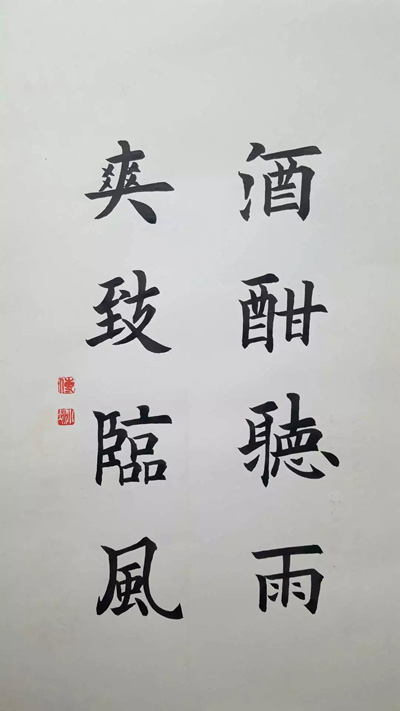 酒酣聽雨
爽致臨風